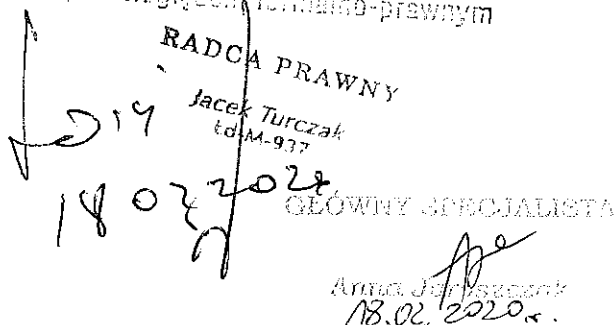 formalno-prawnym
RADCA PRAWNY
Jacek Turczak
Łd-M-937
18 02 202
GŁÓWNY SPECJALISTA
Anna
18.02.2020 r.